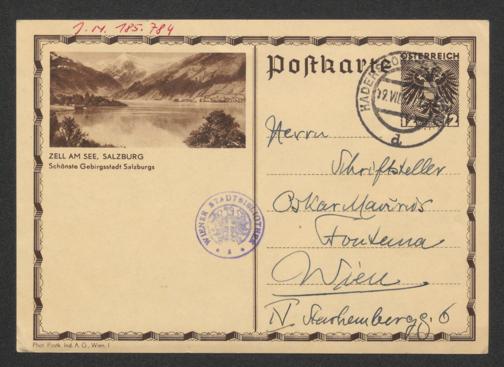 J. N. 185.784
Postkarte
ÖSTERREICH
12
HADER
19. VII.
d
ZELL AM SEE, SALZBURG
Schönste Gebirgsstadt Salzburgs
WIENER STADTBIBLIOTHEK
Herrn
Schriftsteller
Oskar Maurus
Fontana
Wien
IV Starhembergg. 6
Phot. Postk. Ind. A. G., Wien, I